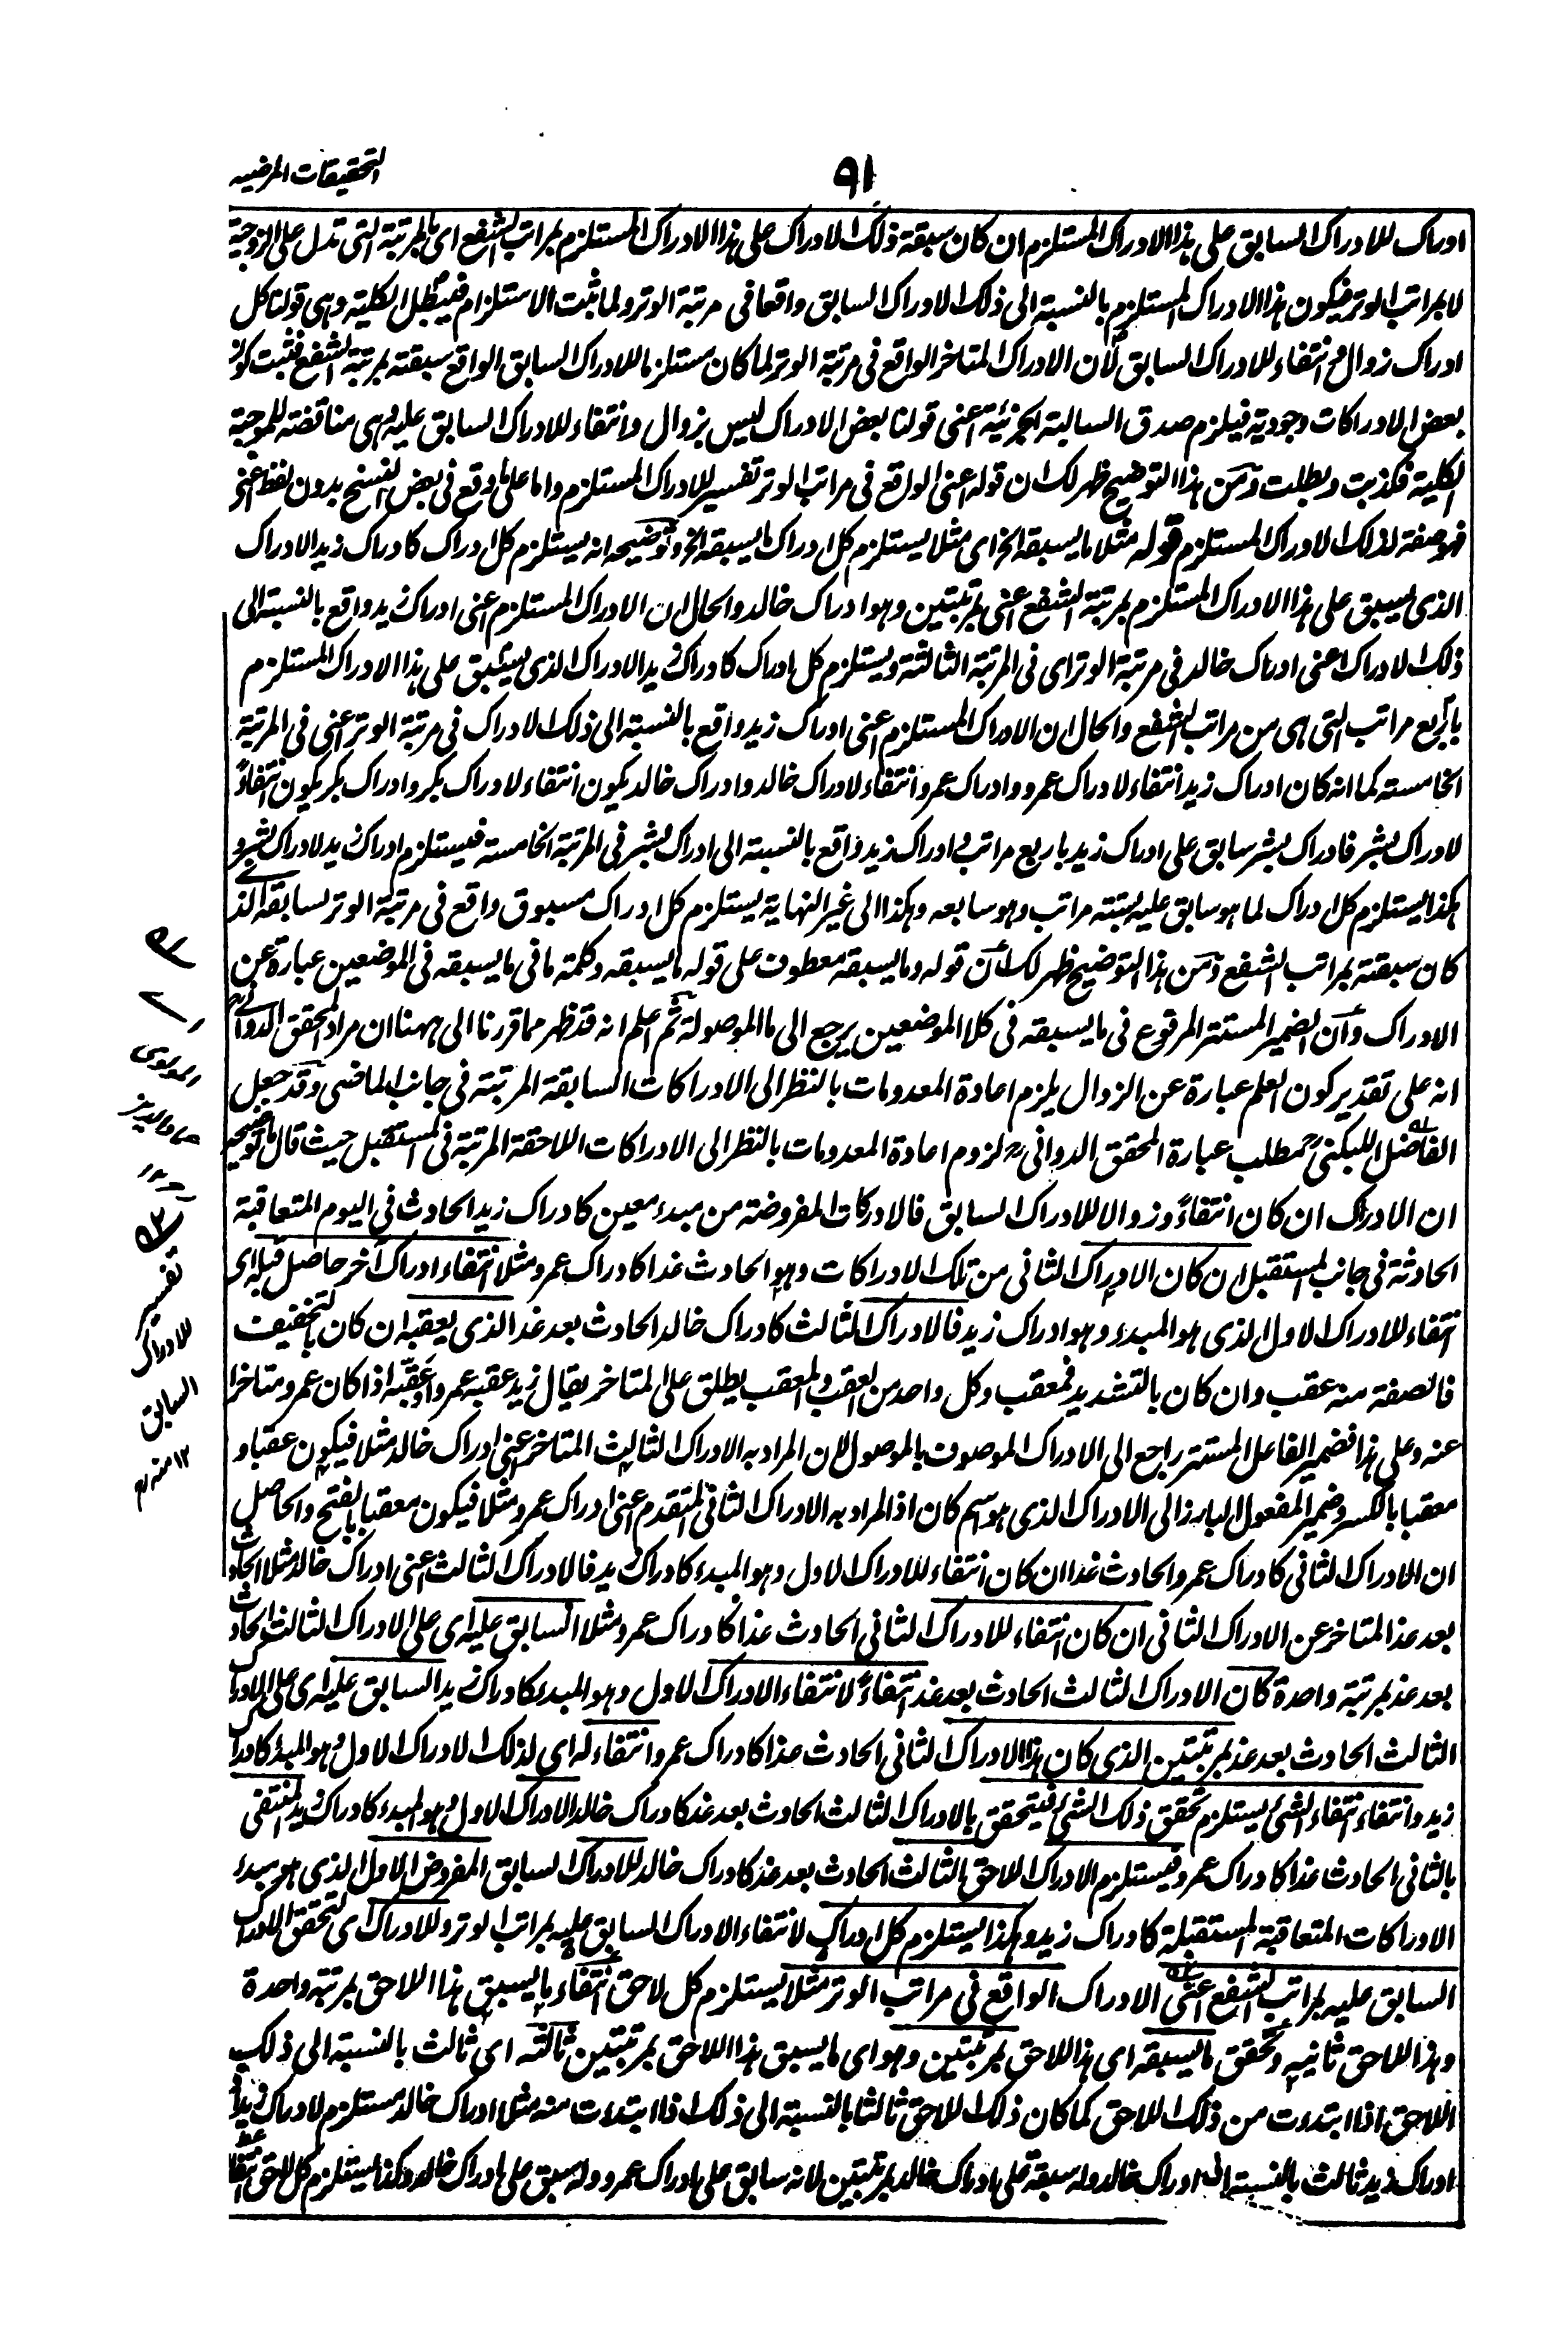 التحقيقات المرضيه
٩١
ادراك للادراك السابق على هذا الادراك المستلزم ان كان سبقة ذلك الادراك على هذا الادراك المستلزم بمراتب الشفع اى بالمرتبة التى تدل على الزوجية
لا بمراتب الوتر فيكون هذا الادراك المستلزم بالنسبة الى ذلك الادراك السابق واقعا فى مرتبة الوتر ولما ثبت الاستلزام فيبطل الكلية وهى قولنا كل
ادراك زوال و انتفاء للادراك السابق لان الادراك المتاخر الواقع فى مرتبة الوتر لما كان مستلزما للادراك السابق الواقع سبقته بمرتبة الشفع فثبت كون
بعض الادراكات وجودية فيلزم صدق السالبة الجزئية اعنى قولنا بعض الادراك ليس بزوال وانتفاء للادراك السابق عليه وهى مناقضة للموجبة
الكلية فكذبت وبطلت ومن هذا التوضيح ظهر لك ان قوله اعنى الواقع فى مراتب الوتر تفسير للادراك المستلزم واما على ما وقع فى بعض النسخ بدون لفظ اعنى
فهو صفة لذلك الادراك المستلزم قوله مثلا ما يسبقه الخ اى مثلا يستلزم كل ادراك ما يسبقه الخ وتوضيحه انه يستلزم كل ادراك كادراك زيد الادراك
الذى يسبق على هذا الادراك المستلزم بمرتبة الشفع اعنى بمرتبتين وهو ادراك خالد والحال ان الادراك المستلزم اعنى ادراك زيد واقع بالنسبة الى
ذلك الادراك اعنى ادراك خالد فى مرتبة الوتر اى فى المرتبة الثالثة ويستلزم كل ادراك كادراك زيد الادراك الذى يسبق على هذا الادراك المستلزم
باربع مراتب التى هى من مراتب الشفع والحال ان الادراك المستلزم اعنى ادراك زيد واقع بالنسبة الى ذلك الادراك فى مرتبة الوتر اعنى فى المرتبة
الخامسة كما انه كان ادراك زيد انتفاء لادراك عمرو وادراك عمرو انتفاء لادراك خالد وادراك خالد يكون انتفاء لادراك بكر وادراك بكر يكون انتفاءً
لادراك بشر فادراك بشر سابق على ادراك زيد باربع مراتب و ادراك زيد واقع بالنسبة الى ادراك بشر فى المرتبة الخامسة فيستلزم ادراك زيد لادراك بشر و
هكذا يستلزم كل ادراك لما هو سابق عليه بستة مراتب وهو سابعه وهكذا الى غير النهاية يستلزم كل ادراك مسبوق واقع فى مرتبة الوتر لسابقه الذى
كان سبقته بمراتب الشفع ومن هذا التوضيح ظهر لك ان قوله وما يسبقه معطوف على قوله ما يسبقه وكلمة ما فى ما يسبقه فى الموضعين عبارة عن
الادراك وان الضمير المستتر المرفوع فى ما يسبقه فى كلا الموضعين يرجع الى ما الموصولة ثم اعلم انه قد ظهر مما قررنا الى ههنا ان مراد المحقق الدوانى
انه على تقدير كون العلم عبارة عن الزوال يلزم اعادة المعدومات بالنظر الى الادراكات السابقة المرتبة فى جانب الماضى وقد جعل
الفاضل اللبكنى مطلب عبارة المحقق الدوانى لزوم اعادة المعدومات بالنظر الى الادراكات اللاحقة المرتبة فى المستقبل حيث قال ما توضيحه
ان الادراك ان كان انتفاءً وزوالا للادراك السابق فالادركات المفروضة من مبدء معين كادراك زيد الحادث فى اليوم المتعاقبة
الحادثة فى جانب المستقبل ان كان الادراك الثانى من تلك الادراكات وهو الحادث غدا كادراك عمرو مثلا انتفاء ادراك آخر حاصل قبله اى
انتفاء للادراك الاول الذى هو المبدء وهو ادراك زيد فالادراك الثالث كادراك خالد الحادث بعد غد الذى يعقبه ان كان بالتخفيف
فالصفة منه عقب وان كان بالتشديد فمعقب وكل واحد من العقب والمعقب يطلق على المتاخر يقال زيد عقبه عمرو او عقّبه اذا كان عمرو متاخرا
عنه وعلى هذا فضمير الفاعل المستتر راجع الى الادراك الموصوف بالموصول لان المراد به الادراك الثالث المتاخر اعنى ادراك خالد مثلا فيكون عقبا و
معقبا بالكسر وضمير المفعول البارز الى الادراك الذى هو اسم كان اذ المراد به الادراك الثانى المتقدم اعنى ادراك عمرو مثلا فيكون معقبا بالفتح والحاصل
ان الادراك الثانى كادراك عمرو الحادث غدا ان كان انتفاء للادراك الاول وهو المبدء كادراك زيد فالادراك الثالث اعنى ادراك خالد مثلا الحادث
بعد غد المتاخر عن الادراك الثانى ان كان انتفاء للادراك الثانى الحادث غدا كادراك عمرو مثلا السابق عليه اى على الادراك الثالث الحادث
بعد غد بمرتبة واحدة كان الادراك الثالث الحادث بعد غد انتفاءً لانتفاء الادراك الاول وهو المبدء كادراك زيد السابق عليه اى على الادراك
الثالث الحادث بعد غد بمرتبتين الذى كان هذا الادراك الثانى الحادث غدا كادراك عمرو انتفاء له اى لذلك الادراك الاول وهو المبدء كادراك
زيد وانتفاء انتفاء الشئ يستلزم تحقق ذلك الشئ فيتحقق بالادراك الثالث الحادث بعد غد كادراك خالد الادراك الاول وهو المبدء كادراك زيد المنتفى
بالثانى الحادث غدا كادراك عمرو فيستلزم الادراك اللاحق الثالث الحادث بعد غد كادراك خالد للادراك السابق المفروض الاول الذى هو مبدء
الادراكات المتعاقبة المستقبلة كادراك زيد وهكذا يستلزم كل ادراك لانتفاء الادراك السابق عليه بمراتب الوتر وللادراك اى لتحقق الادراك
السابق عليه بمراتب الشفع اعنى الادراك الواقع فى مراتب الوتر مثلا يستلزم كل لاحق انتفاء ما يسبق هذا اللاحق بمرتبة واحدة
وهذا اللاحق ثانيه وتحقق ما يسبقه اى هذا اللاحق بمرتبتين وهو اى ما يسبق هذا اللاحق بمرتبتين ثالثه اى ثالث بالنسبة الى ذلك
اللاحق اذا ابتدءت من ذلك اللاحق كما كان ذلك اللاحق ثالثا بالنسبة الى ذلك اذا ابتدءت منه مثلا ادراك خالد مستلزم لادراك زيد و
ادراك زيد ثالث بالنسبة الى ادراك خالد وله سبقة على ادراك خالد بمرتبتين لانه سابق على ادراك عمرو وله سبق على ادراك خالد وهكذا يستلزم كل لاحق انتفاء
تفسير
للادراك
السابق
١٢ منه رح